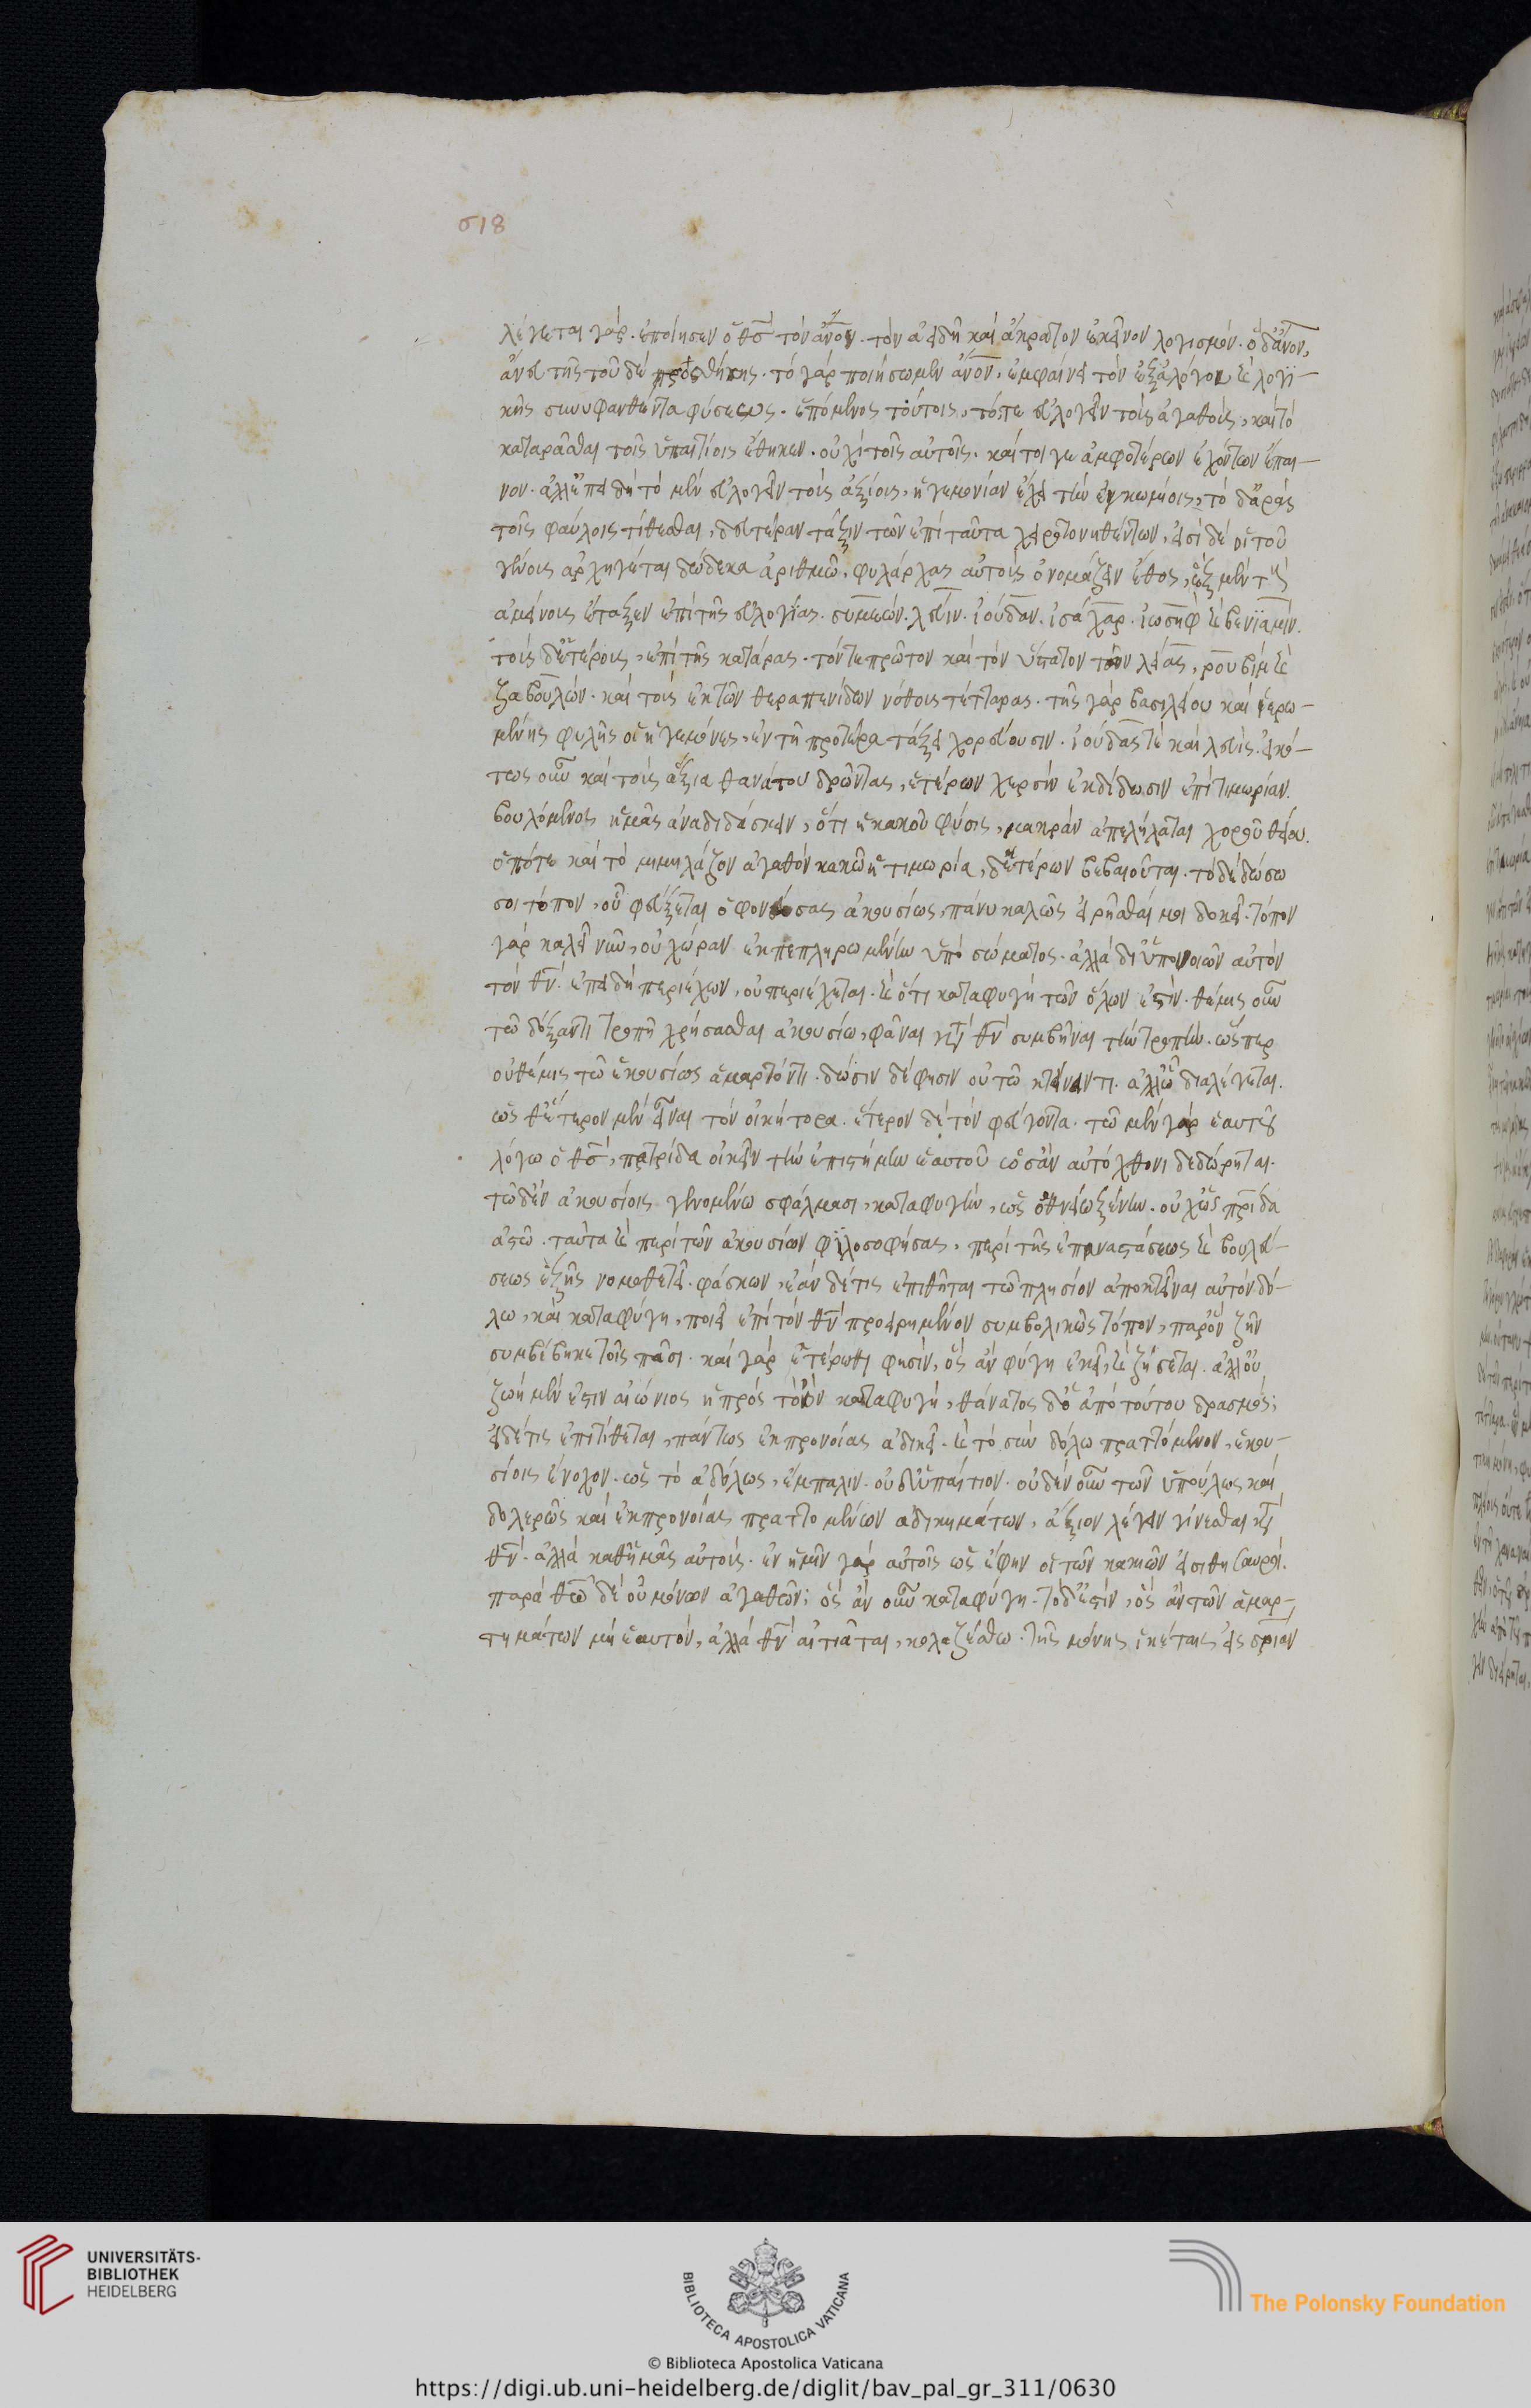 σ18
λέγεται γάρ. ἐποίησεν ὁ θσ̅ τὸν ἄν̅ο̅ν. τὸν ἀειδῆ καὶ ἄκρατον ἐκεῖνον λογισμόν. ὁ δ' ἄν̅ο̅ν,
ἄνευ τῆς τοῦδε προσθήκης. τὸ γὰρ ποιήσωμεν ἄν̅ο̅ν, ἐμφαίνει τὸν ἐξ ἀλόγου καὶ λογι-
κῆς συνυφανθέντα φύσεως. ἑπόμενος τούτοις, τό, τε εὐλογεῖν τοὺς ἀγαθούς, καὶ τὸ
καταρᾶσθαι τοῖς ὑπαιτίοις ἔθηκεν. οὐχὶ τοῖς αὐτοῖς. καί τοι γε ἀμφοτέρων ἐχόντων ἔπαι-
νον. ἀλλ' ἐπειδὴ τὸ μὲν εὐλογεῖν τοὺς ἀξίους, ἡγεμονίαν ἔχει τὴν ἐγκωμίοις, τὸ δ' ἀρὰς
τοῖς φαύλοις τίθεσθαι, δευτέραν τάξιν τῶν ἐπὶ ταῦτα χειροτονηθέντων, εἰσὶ δὲ οἱ τοῦ
γένους ἀρχηγέται δώδεκα ἀριθμῷ, φυλάρχας αὐτοὺς ὀνομάζειν ἔθος, ἓξ μὲν τοὺς
ἀμείνους ἔταξεν ἐπὶ τῆς εὐλογίας. συμεών. λευίν. ἰούδαν. ἰσάχαρ. ἰωσὴφ καὶ βενϊαμίν.
τοὺς δ' ἑτέρους, ἐπὶ τῆς κατάρας. τόν τε πρῶτον καὶ τὸν ὕστατον τῶν λείας, ρουβὶμ καὶ
ζαβουλών. καὶ τοὺς ἐκ τῶν θεραπενίδων νόθους τέτταρας. τῆς γὰρ βασιλείου καὶ ἱερω-
μένης φυλῆς οἱ ἡγεμόνες, ἐν τῇ προτέρα τάξει χορεύουσιν. ἰούδας τὲ καὶ λευίς. εἰκό-
τως οὖν καὶ τοὺς ἄξια θανάτου δρῶντας, ἑτέρων χερσὶν ἐκδίδωσιν ἐπὶ τιμωρίαν.
βουλόμενος ἡμᾶς ἀναδιδάσκειν, ὅτι ἡ κακοῦ φύσις, μακρὰν ἀπελήλαται χοροῦ θείου.
ὁπότε καὶ τὸ μιμηλάζον ἀγαθὸν κακῶ ἡ τιμωρία, δι' ἑτέρων βεβαιοῦται. τὸ δὲ δώσω
σοι τόπον, οὗ φεύξεται ὁ φονεύσας ἀκουσίως, πάνυ καλῶς εἰρῆσθαί μοι δοκεῖ. τόπον
γὰρ καλεῖ νῦν, οὐ χώραν ἐκπεπληρωμένην ὑπὸ σώματος. ἀλλὰ δι' ὑπονοιῶν αὐτὸν
τὸν θν̅. ἐπειδὴ περιέχων, οὐ περιέχεται. καὶ ὅτι καταφυγὴ τῶν ὅλων ἐστίν. θέμις οὖν
τῷ δόξαντι τροπῇ χρήσασθαι ἀκουσίω, φάναι κατὰ θν̅ συμβῆναι τὴν τροπήν. ὥσπερ
οὐ θέμις τῷ ἑκουσίως ἁμαρτόντι. δώσιν δέ φησιν οὐ τῷ κτείναντι. ἀλλ' ᾧ διαλέγεται.
ὡς θ' ἕτερον μὲν εἶναι τὸν οἰκήτορα. ἕτερον δὲ τὸν φεύγοντα. τῷ μὲν γὰρ ἑαυτοῦ
λόγω ὁ θσ̅, πατρίδα οἰκεῖν τὴν ἐπιστήμην ἑαυτοῦ ὡσὰν αὐτόχθονι δεδώρηται.
τῷ δ' ἐν ἀκουσίοις γενομένω σφάλμασι, καταφυγήν, ὡς ὀθνείω ξένην. οὐχ ὡς πρ̅ίδα
ἀστῶ. ταῦτα καὶ περὶ τῶν ἀκουσίων φϊλοσοφήσας, περὶ τῆς ἐπαναστάσεως καὶ βουλεύ-
σεως ἑξῆς νομοθετεῖ. φάσκων, ἐὰν δέ τις ἐπιθῆται τῷ πλησίον ἀποκτεῖναι αὐτὸν δό-
λω, καὶ καταφύγη, ποιεῖ ἐπὶ τὸν θν̅ προειρημένον συμβολικῶς τόπον, παρ' ὃν ζῆν
συμβέβηκε τοῖς πᾶσι. καὶ γὰρ ἑτέρωθι φησίν, ὃς ἂν φύγη ἐκεῖ, καὶ ζήσεται. ἀλλ' οὐ
ζωὴ μὲν ἔστιν αἰώνιος ἡ πρὸς τὸ ὂν καταφυγή, θάνατος δ' ὁ ἀπὸ τούτου δρασμός;
εἰ δέ τις ἐπιτίθεται, πάντως ἐκ προνοίας ἀδικεῖ. καὶ τὸ σὺν δόλω πραττόμενον, ἑκου-
σίοις ἔνοχον. ὡς τὸ ἀδόλως, ἔμπαλιν. οὐδ' ὑπαίτιον. οὐδὲν οὖν τῶν ὑπούλως καὶ
δολερῶς καὶ ἐκ προνοίας πραττομένων ἀδικημάτων, ἄξιον λέγειν γίνεσθαι κατὰ
θν̅. ἀλλὰ καθ' ἡμᾶς αὐτούς. ἐν ἡμῖν γὰρ αὐτοῖς ὡς ἔφην οἱ τῶν κακῶν εἰσι θησαυροί.
παρὰ θῶ̅ δὲ οἱ μόνων ἀγαθῶν; ὃς ἂν οὖν καταφύγη. τὸ δ' ἐστίν, ὃς ἂν τῶν ἁμαρ-
τημάτων μὴ ἑαυτόν, ἀλλὰ θν̅ αἰτιᾶται, κολαζέσθω. τῆς μόνης ἱκέταις, εἰς σρ̅ίαν
UNIVERSITÄTS-
BIBLIOTHEK
HEIDELBERG
BIBLIOTECA APOSTOLICA VATICANA
The Polonsky Foundation
© Biblioteca Apostolica Vaticana
https://digi.ub.uni-heidelberg.de/diglit/bav_pal_gr_311/0630